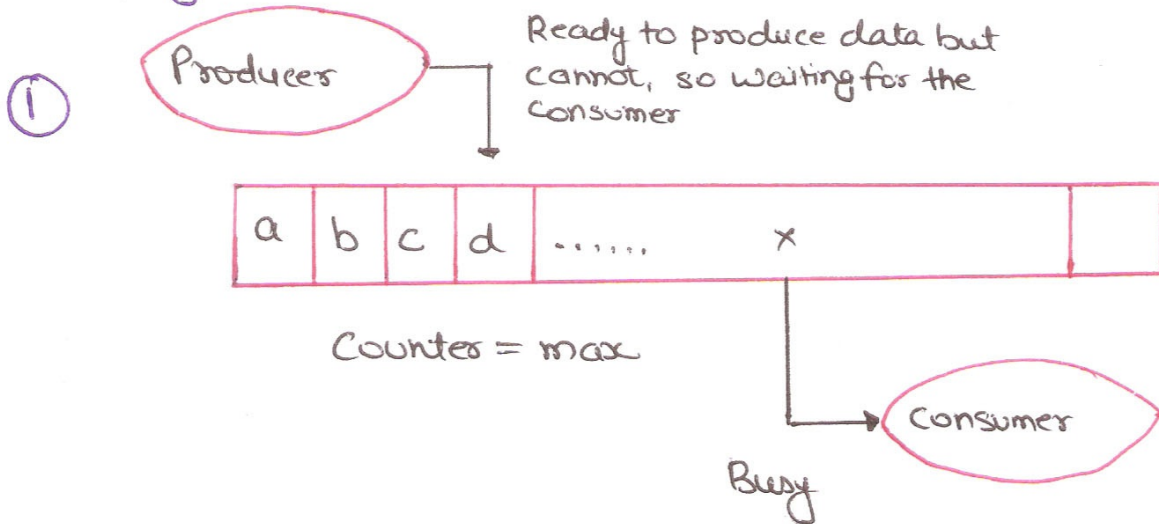 ①
Producer
Ready to produce data but
cannot, so waiting for the
consumer
a b c d ...... x
Counter = max
Consumer
Busy